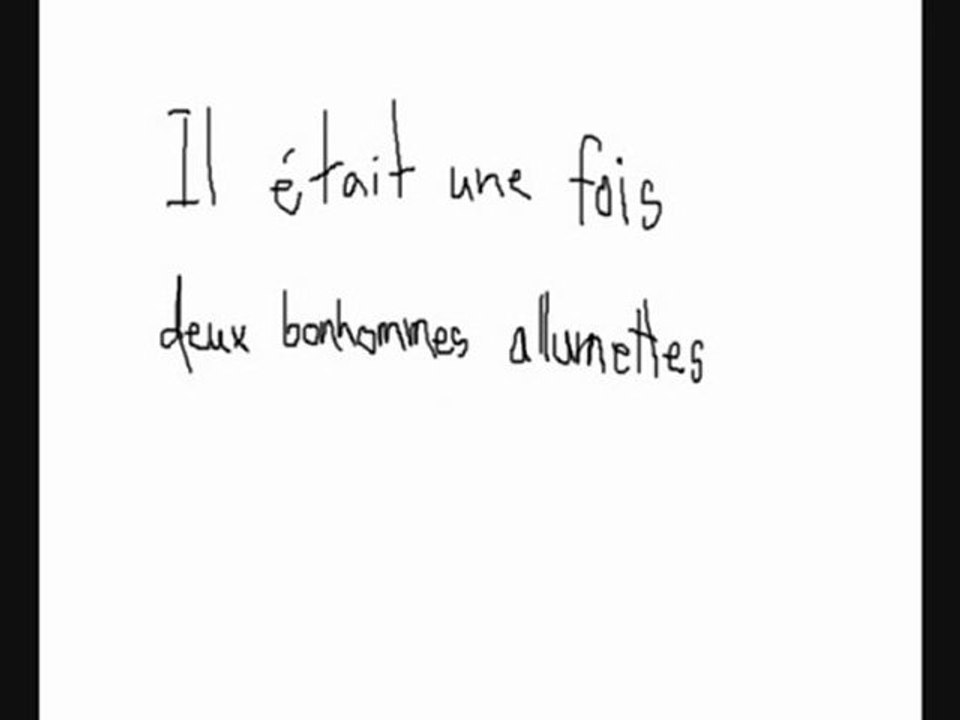 Il était une fois
deux bonhommes allumettes